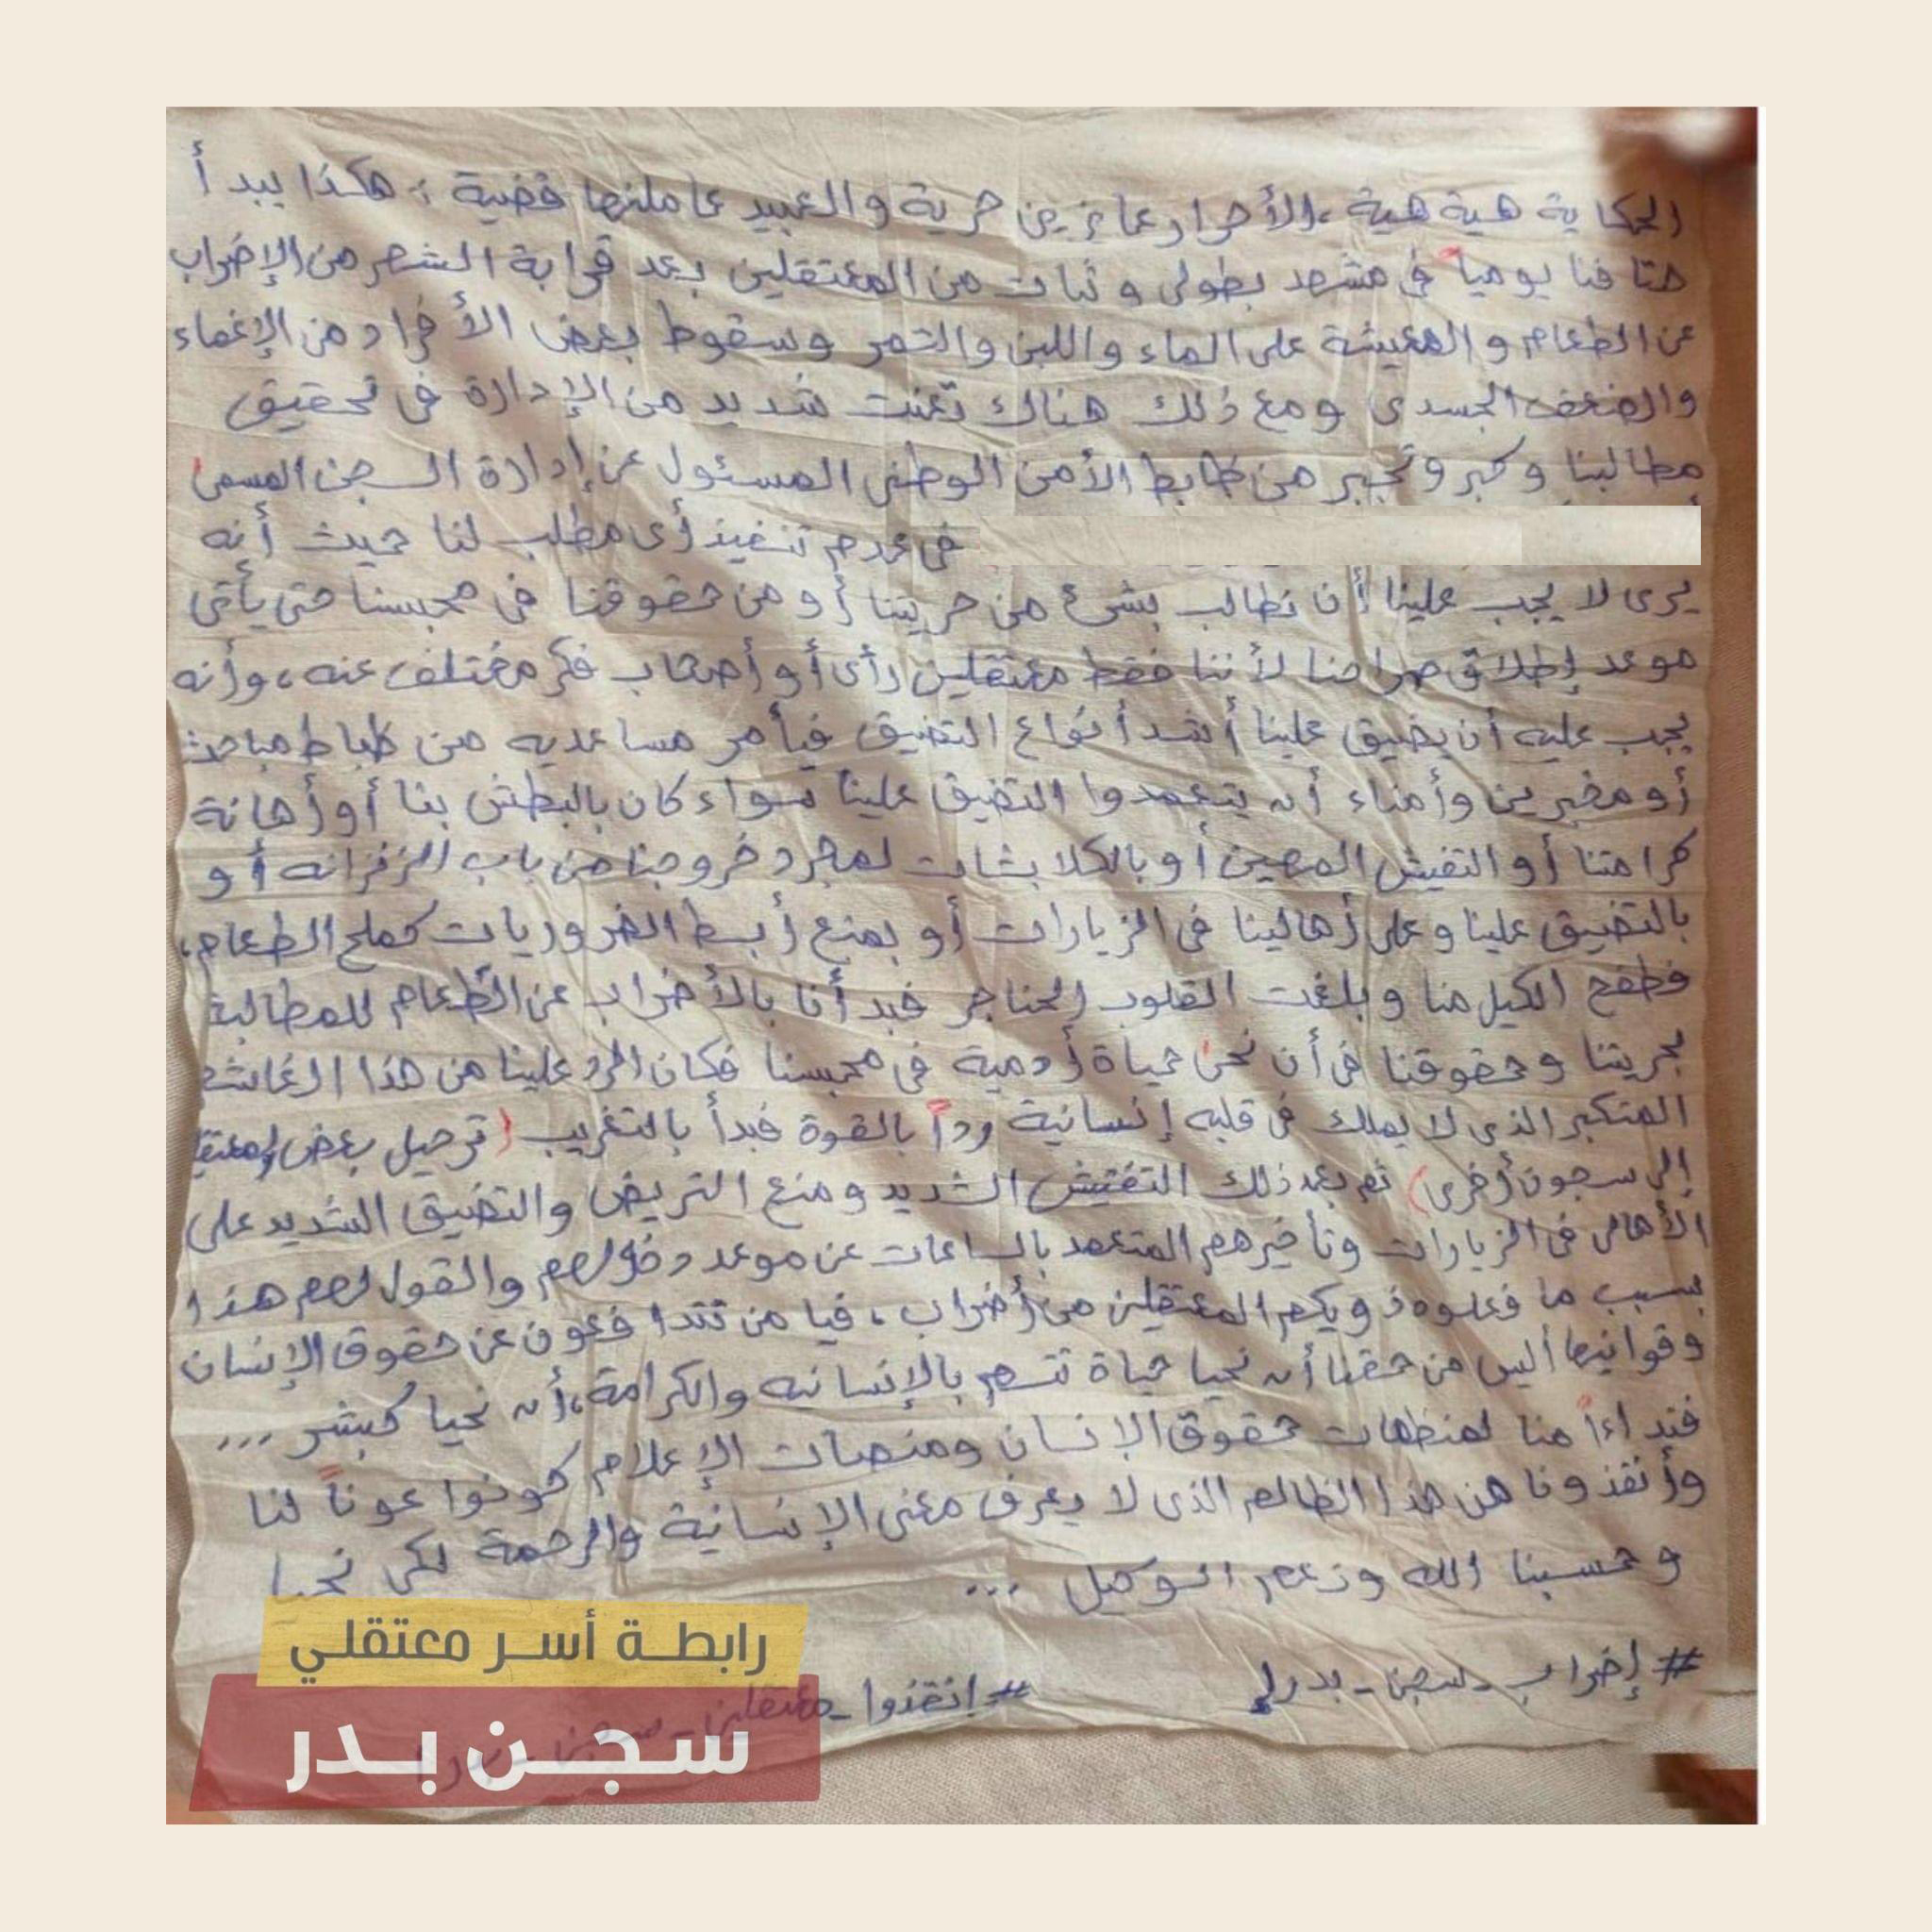 الحكاية هية هية ، الأحرار عايزين حرية والعبيد عاملنها قضية ؛ هكذا يبدأ
هتافنا يومياً في مشهد بطولى وثبات من المعتقلين بعد قرابة الشهر من الإضراب
عن الطعام والمعيشة على الماء واللبن والتمر وسقوط بعض الأفراد من الإغماء
والضعف الجسدى ومع ذلك هناك تعنت شديد من الإدارة فى تحقيق
مطالبنا وكبر وتجبر من ظابط الأمن الوطنى المسئول عن إدارة السجن المسمى
فى عدم تنفيذ أى مطلب لنا حيث أنه
يرى لا يجب علينا أن نطالب بشئ من حريتنا أو من حقوقنا فى محبسنا حتى يأتى
موعد إطلاق صراحنا لأننا فقط معتقلين رأى أو أصحاب فكر مختلف عنه ، وأنه
يجب عليه أن يضيق علينا أشد أنواع التضيق فيأمر مساعديه من ظباط مباحث
أو مخبرين وأمناء أن يتعمدوا التضيق علينا سواء كان بالبطش بنا أو أهانة
كرامتنا أو التفيش المهين أو بالكلابشات لمجرد خروجنا من باب الزنزانه أو
بالتضييق علينا وعلى أهالينا فى الزيارات أو بمنع أبسط الضروريات كملح الطعام ،
فطفح الكيل منا وبلغت القلوب الحناجر فبدأنا بالأضراب عن الطعام للمطالبة
بحريتنا وحقوقنا فى أن نحى حياة أدمية فى محبسنا فكان الرد علينا من هذا الغاشم
المتكبر الذى لا يملك فى قلبه إنسانية رداً بالقوة فبدأ بالتغريب (ترحيل بعض
إلى سجون أخرى) ثم بعد ذلك التفتيش الشديد ومنع التريض والتضيق الشديد على
الأهالى فى الزيارات وتأخيرهم المتعمد بالساعات عن موعد دخولهم والقول لهم هذا
بسبب ما فعلوه ذويكم المعتقلين من أضراب ، فيا من تتدافعون عن حقوق الإنسان
وقوانينها أليس من حقنا أن نحيا حياة تتسم بالإنسانه والكرامة ، أن نحيا كبشر ...
فنداءاً منا لمنظمات حقوق الإنسان ومنصات الإعلام كونوا عوناً لنا
وأنقذونا من هذا الظالم الذى لا يعرف معنى الإنسانية والرحمة لكى نحيا
وحسبنا الله ونعم الوكيل ...
#إضراب_سجن_بدر1
#انقذوا_معتقلين_سجن_بدر1
رابطة أسر معتقلي
سجن بدر